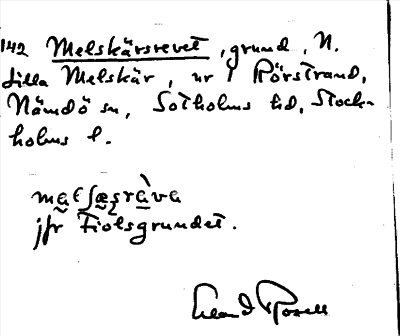 142 Melskärsrevet, grund, N.
Lilla Melskär, ur Rörstrand,
Nämdö sn, Sotholms hd, Stock-
holms l.
jfr Fiolsgrundet.
Rosell